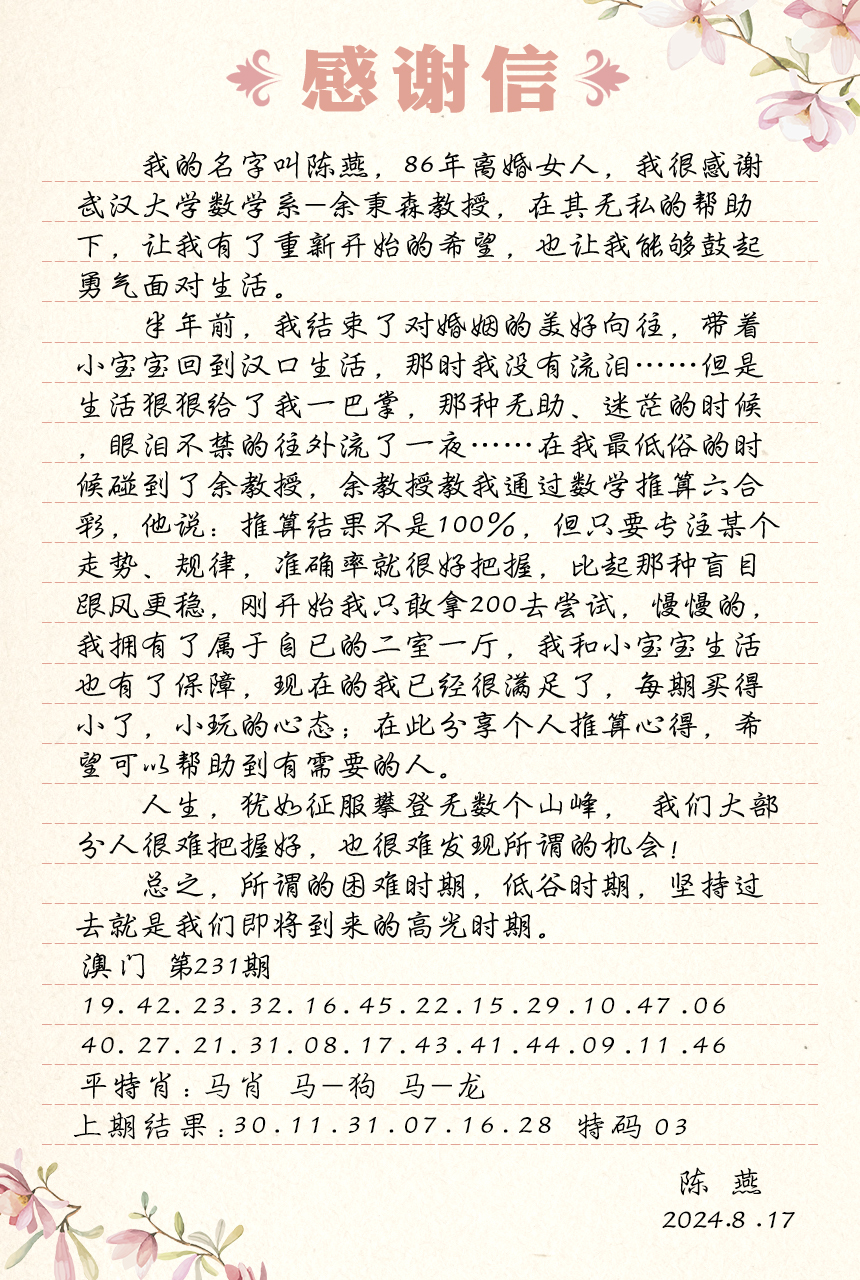 感谢信
我的名字叫陈燕，86年离婚女人，我很感谢
武汉大学数学系—余秉森教授，在其无私的帮助
下，让我有了重新开始的希望，也让我能够鼓起
勇气面对生活。
半年前，我结束了对婚姻的美好向往，带着
小宝宝回到汉口生活，那时我没有流泪……但是
生活狠狠给了我一巴掌，那种无助、迷茫的时候
，眼泪不禁的往外流了一夜……在我最低俗的时
候碰到了余教授，余教授教我通过数学推算六合
彩，他说：推算结果不是100%，但只要专注某个
走势、规律，准确率就很好把握，比起那种盲目
跟风更稳，刚开始我只敢拿200去尝试，慢慢的，
我拥有了属于自已的二室一厅，我和小宝宝生活
也有了保障，现在的我已经很满足了，每期买得
小了，小玩的心态；在此分享个人推算心得，希
望可以帮助到有需要的人。
人生，犹如征服攀登无数个山峰， 我们大部
分人很难把握好，也很难发现所谓的机会！
总之，所谓的困难时期，低谷时期，坚持过
去就是我们即将到来的高光时期。
澳门 第231期
19.42.23.32.16.45.22.15.29.10.47.06
40.27.21.31.08.17.43.41.44.09.11.46
平特肖：马肖 马—狗 马—龙
上期结果：30.11.31.07.16.28 特码 03
陈 燕
2024.8.17